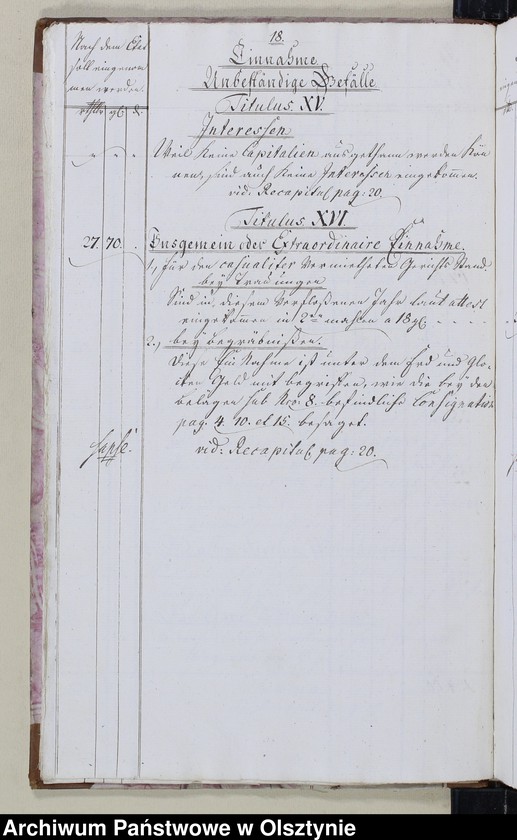 18.
Nach dem Etat
soll eingenom
men werden.
rthlr gl d.
Einnahme
Unbeständige Gefälle
Titulus XV.
Interessen
Weil keine Capitalien ausgethan werden kön
nen, sind auch keine Interessen eingekommen.
vid: Recapitul pag: 20.
Titulus XVI.
27. 70. Insgemein oder Extraordinaire Einnahme.
1., für den casualiter vermietheten Gerichts Stand.
bey Trauungen
Sind in diesem verfloßenen Jahr laut attest
eingekommen in 2 mahlen a 18 gl
2., bey Begräbnißen.
Diese Einnahme ist unter dem Erd und Glo-
cken Geld mit begriffen, wie die bey den
Belägen sub Nro: 8. befindliche Consignation
pag. 4. 10. et 15. besaget.
vid: Recapitul pag: 20.